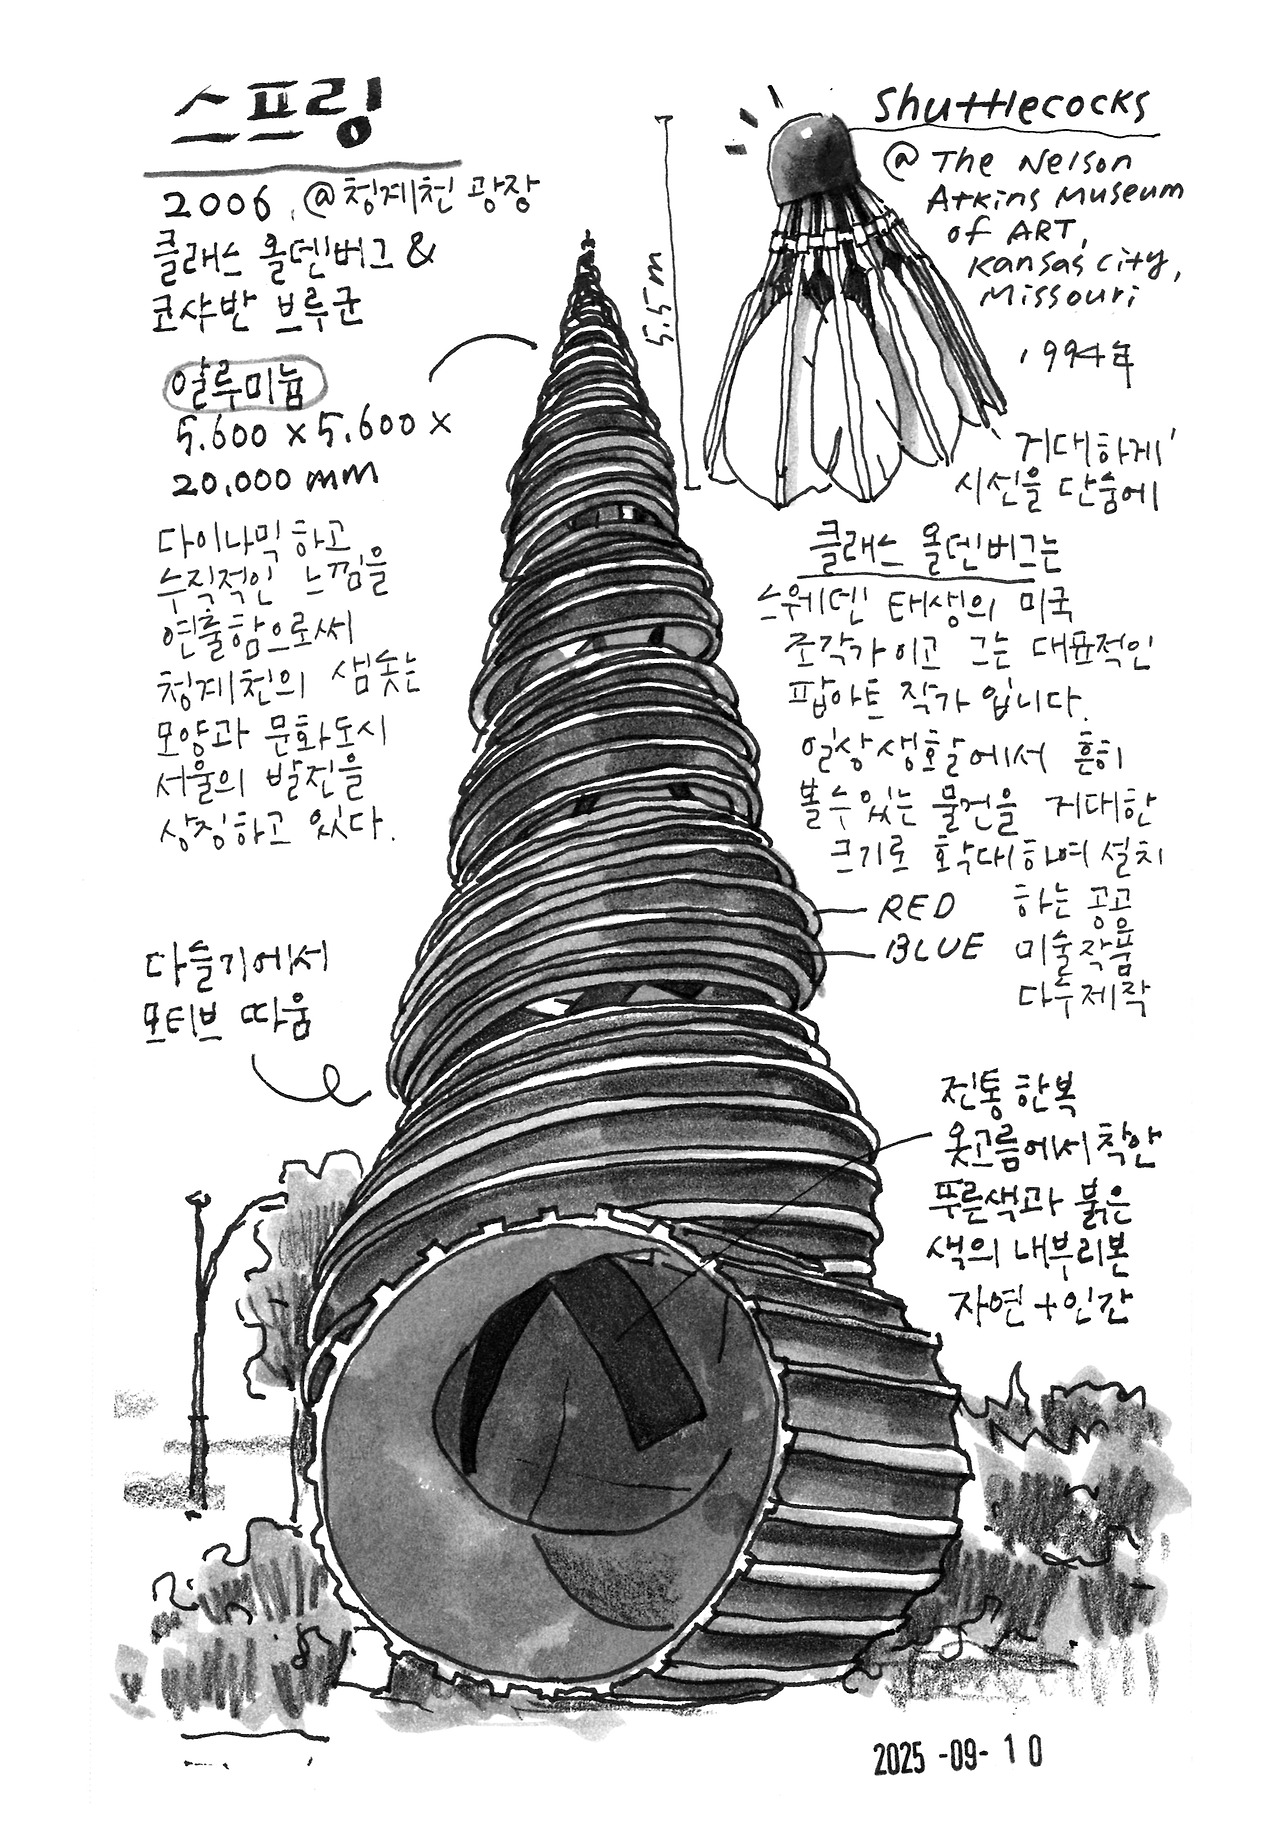 스프링
2006. @청계천 광장
클래스 올덴버그 &
코샤반 브루군
알루미늄
5.600 x 5.600 x
20.000 mm
다이나믹하고
수직적인 느낌을
연출함으로써
청계천의 샘솟는
모양과 문화도시
서울의 발전을
상징하고 있다.
다슬기에서
모티브 따옴
5.5m
Shuttlecocks
@ The Nelson
Atkins Museum
of ART,
Kansas City,
Missouri
1994年
'거대하게'
시선을 단숨에
클래스 올덴버그는
스웨덴 태생의 미국
조각가이고 그는 대표적인
팝아트 작가 입니다.
일상생활에서 흔히
볼수있는 물건을 거대한
크기로 확대하여 설치
하는 공공
미술작품
다수제작
RED
BLUE
전통 한복
옷고름에서 착안
푸른색과 붉은
색의 내부리본
자연+인간
2025-09-10